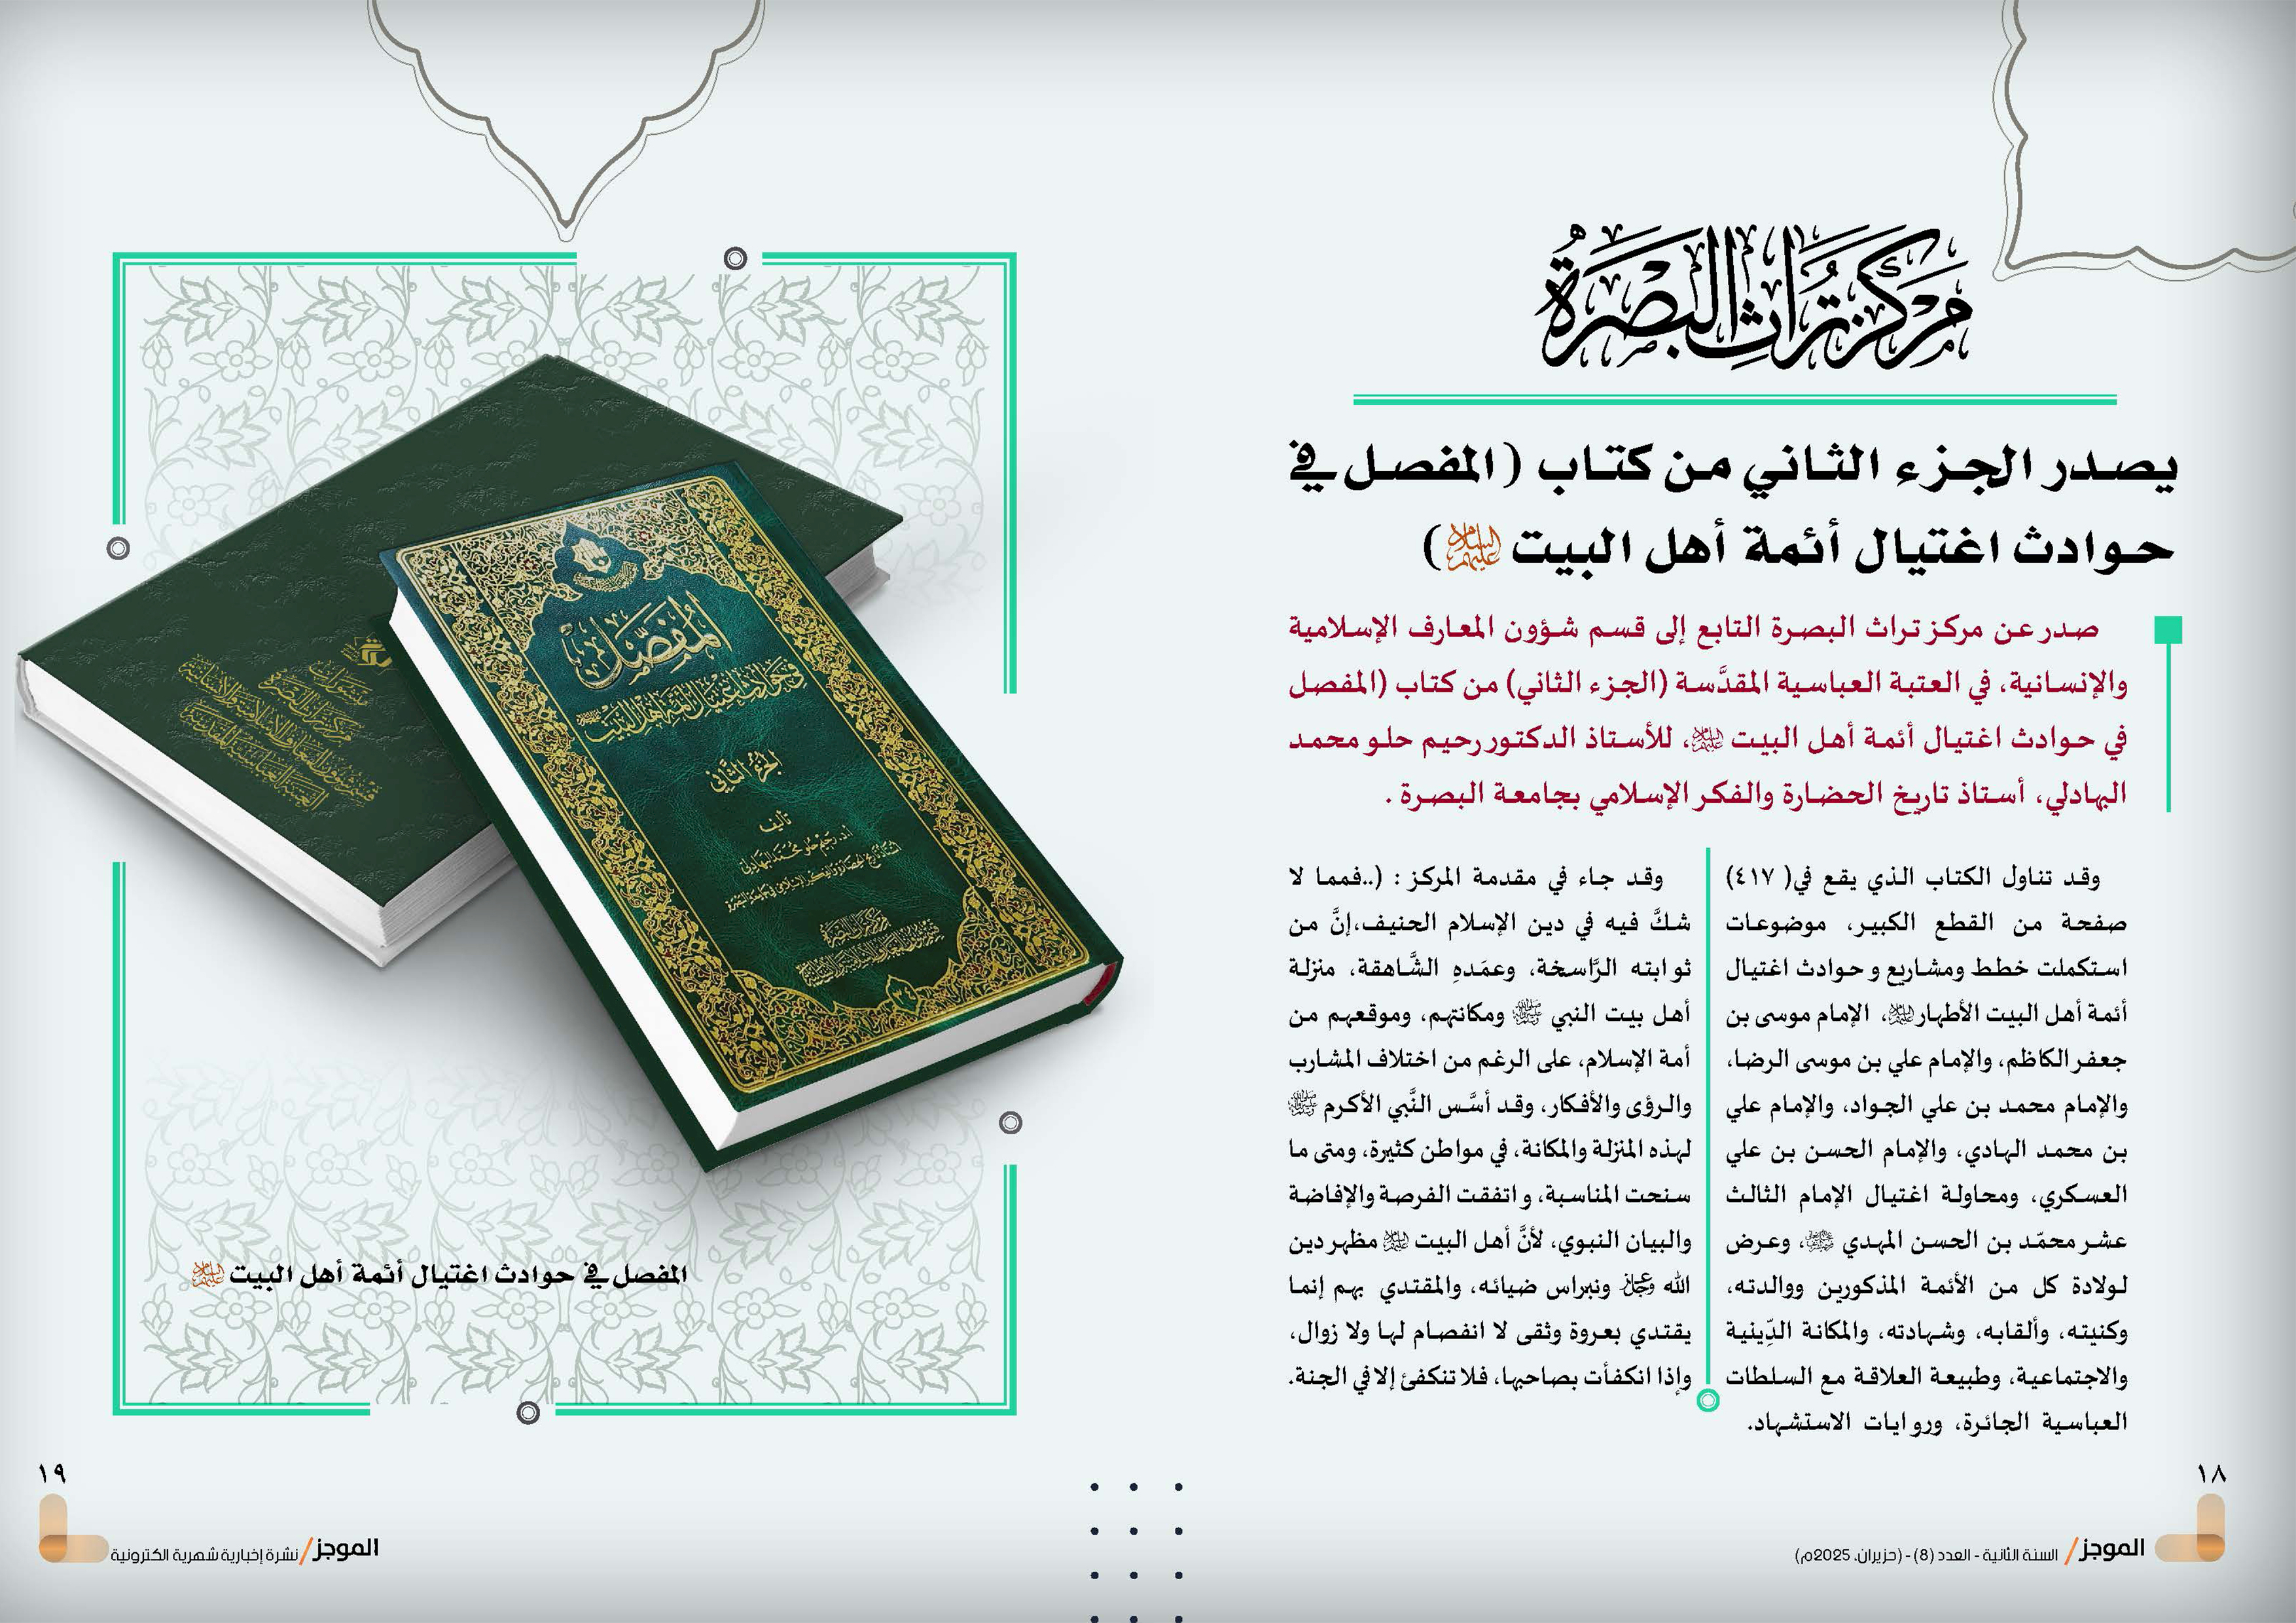 مركز تراث البصرة
يصدر الجزء الثاني من كتاب (المفصل في
حوادث اغتيال أئمة أهل البيت عليهم السلام)
صدر عن مركز تراث البصرة التابع إلى قسم شؤون المعارف الإسلامية
والإنسانية، في العتبة العباسية المقدَّسة (الجزء الثاني) من كتاب (المفصل
في حوادث اغتيال أئمة أهل البيت عليهم السلام، للأستاذ الدكتور رحيم حلو محمد
البهادلي، أستاذ تاريخ الحضارة والفكر الإسلامي بجامعة البصرة .
وقد تناول الكتاب الذي يقع في( ٤١٧)
صفحة من القطع الكبير، موضوعات
استكملت خطط ومشاريع و حوادث اغتيال
أئمة أهل البيت الأطهار عليهم السلام، الإمام موسى بن
جعفر الكاظم، والإمام علي بن موسى الرضا،
والإمام محمد بن علي الجواد، والإمام علي
بن محمد الهادي، والإمام الحسن بن علي
العسكري، ومحاولة اغتيال الإمام الثالث
عشر محمّد بن الحسن المهدي، وعرض
لولادة كل من الأئمة المذكورين ووالدته،
وكنيته، وألقابه، وشهادته، والمكانة الدِّينية
والاجتماعية، وطبيعة العلاقة مع السلطات
العباسية الجائرة، وروايات الاستشهاد.
وقد جاء في مقدمة المركز : (..فمما لا
شكَّ فيه في دين الإسلام الحنيف،إنَّ من
ثوابته الرَّاسخة، وعمَدهِ الشَّاهقة، منزلة
أهل بيت النبي ﷺ ومكانتهم، وموقعهم من
أمة الإسلام، على الرغم من اختلاف المشارب
والرؤى والأفكار، وقد أسَّس النَّبي الأكرم ﷺ
لهذه المنزلة والمكانة، في مواطن كثيرة، ومتى ما
سنحت المناسبة، واتفقت الفرصة والإفاضة
والبيان النبوي، لأنَّ أهل البيت عليهم السلام مظهر دين
الله عز وجل ونبراس ضيائه، والمقتدي بهم إنما
يقتدي بعروة وثقى لا انفصام لها ولا زوال،
وإذا انكفأت بصاحبها، فلا تنكفئ إلا في الجنة.
١٨
الموجز/ السنة الثانية - العدد (8) - (حزيران، 2025م)
المُفصَّل
في حوادث اغتيال أئمة أهل البيت
الجزء الثاني
تأليف
أ.د. رحيم حلو محمد البهادلي
أستاذ تاريخ الحضارة والفكر الإسلامي في جامعة البصرة
مركز تراث البصرة
منشورات
مركز تراث البصرة
قسم شؤون المعارف الإسلامية والإنسانية
العتبة العباسية المقدسة
المفصل في حوادث اغتيال أئمة أهل البيت عليهم السلام
١٩
الموجز/ نشرة إخبارية شهرية الكترونية